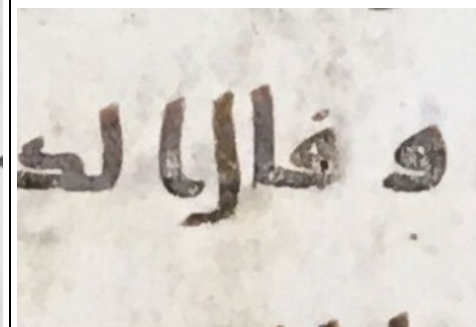 وقال الد